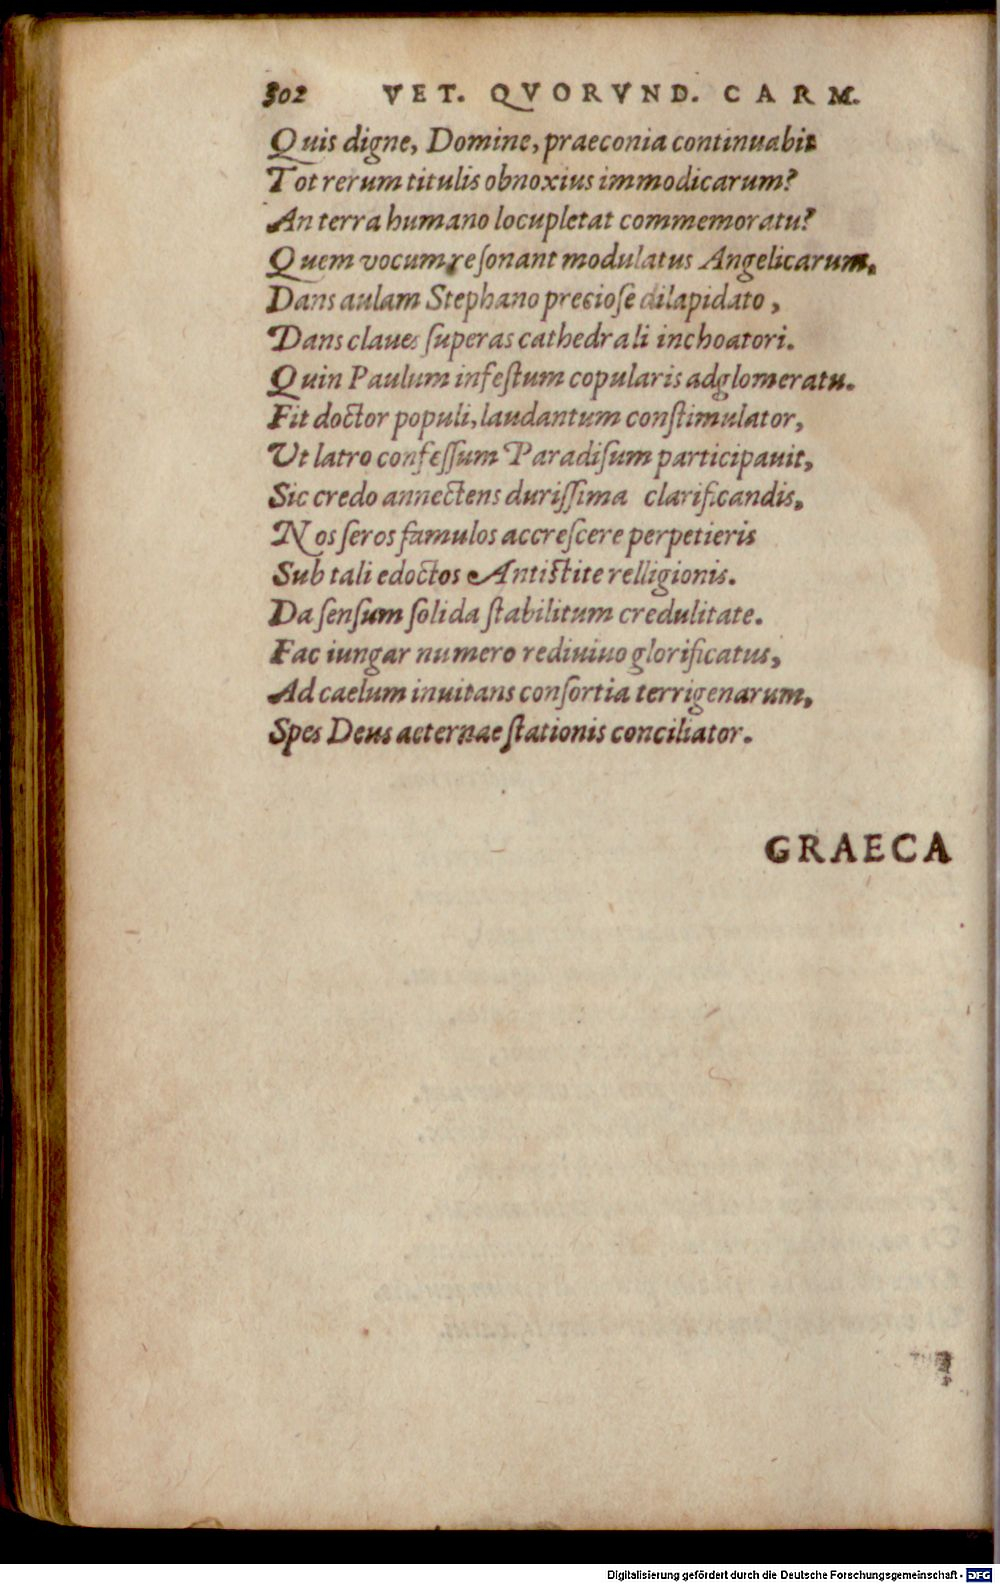 302 VET. QVORVND. CARM.
Quis digne, Domine, praeconia continuabit
Tot rerum titulis obnoxius immodicarum?
An terra humano locupletat commemoratu?
Quem vocum reſonant modulatus Angelicarum.
Dans aulam Stephano precioſe dilapidato,
Dans claues ſuperas cathedrali inchoatori.
Quin Paulum infeſtum copularis adglomeratu.
Fit doctor populi, laudantum conſtimulator,
Ut latro confeſſum Paradiſum participauit,
Sic credo annectens duriſſima clarificandis,
Nos ſeros famulos accreſcere perpetieris
Sub tali edoctos Antiſtite relligionis.
Da ſenſum ſolida ſtabilitum credulitate.
Fac iungar numero rediuiuo glorificatus,
Ad caelum inuitans conſortia terrigenarum,
Spes Deus aeternae ſtationis conciliator.
GRAECA
Digitalisierung gefördert durch die Deutsche Forschungsgemeinschaft - DFG